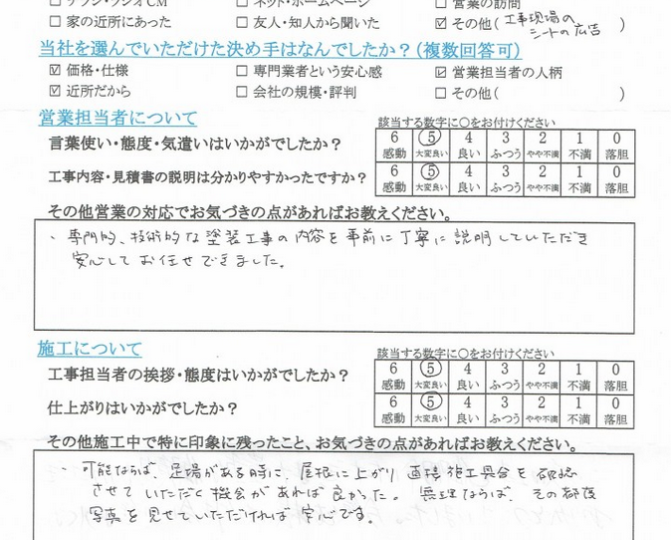 □ チラシ・ラジオCM □ ネット・ホームページ □ 営業の訪問
□ 家の近所にあった □ 友人・知人から聞いた ☑ その他( 工事現場の シートの広告 )
当社を選んでいただけた決め手はなんでしたか?(複数回答可)
☑ 価格・仕様 □ 専門業者という安心感 ☑ 営業担当者の人柄
☑ 近所だから □ 会社の規模・評判 □ その他( )
営業担当者について
該当する数字に○をお付けください
言葉使い・態度・気遣いはいかがでしたか? 6 5 4 3 2 1 0
感動 大変良い 良い ふつう やや不満 不満 落胆
工事内容・見積書の説明は分かりやすかったですか? 6 5 4 3 2 1 0
感動 大変良い 良い ふつう やや不満 不満 落胆
その他営業の対応でお気づきの点があればお教えください。
・専門的、技術的な塗装工事の内容を事前に丁寧に説明していただき
安心してお任せできました。
施工について
該当する数字に○をお付けください
工事担当者の挨拶・態度はいかがでしたか? 6 5 4 3 2 1 0
感動 大変良い 良い ふつう やや不満 不満 落胆
仕上がりはいかがでしたか? 6 5 4 3 2 1 0
感動 大変良い 良い ふつう やや不満 不満 落胆
その他施工中で特に印象に残ったこと、お気づきの点があればお教えください。
・可能ならば、足場がある時に、屋根に上がり直接視工具合を確認
させていただく機会があれば良かった。無理ならば、その都度
写真を見せていただければ安心です。